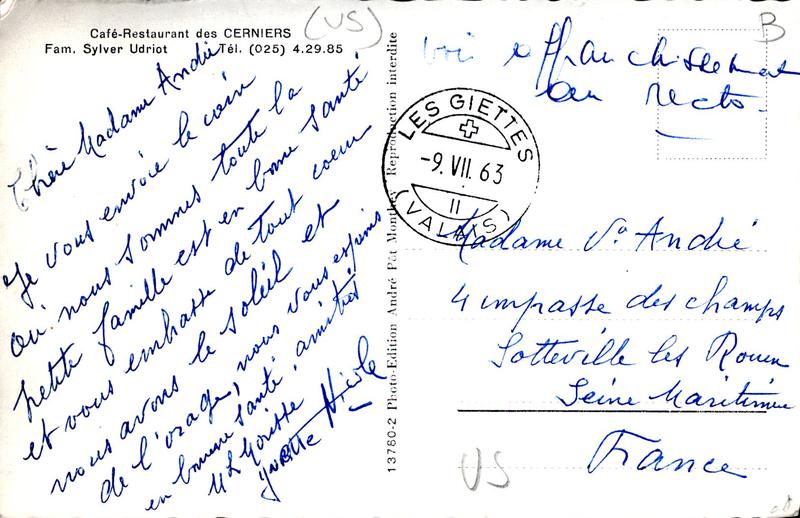 Café-Restaurant des CERNIERS
Fam. Sylver Udriot Tél. (025) 4.29.85
(VS)
B
Chère Madame André
Je vous envoie le coin
où nous sommes toute la
petite famille est en bonne santé
et vous embrasse de tout coeur
nous avons le soleil et
de l'orage, nous vous espérons
en bonne santé. amitiés
Yvette Nicole
13780-2 Photo-Edition André Pat Monthey Reproduction interdite
voir affranchissement
au recto.
LES GIETTES
-9. VII. 63
II
(VALAIS)
Madame Vᵉ André
4 impasse des champs
Sotteville les Rouen
Seine Maritime
France
VS